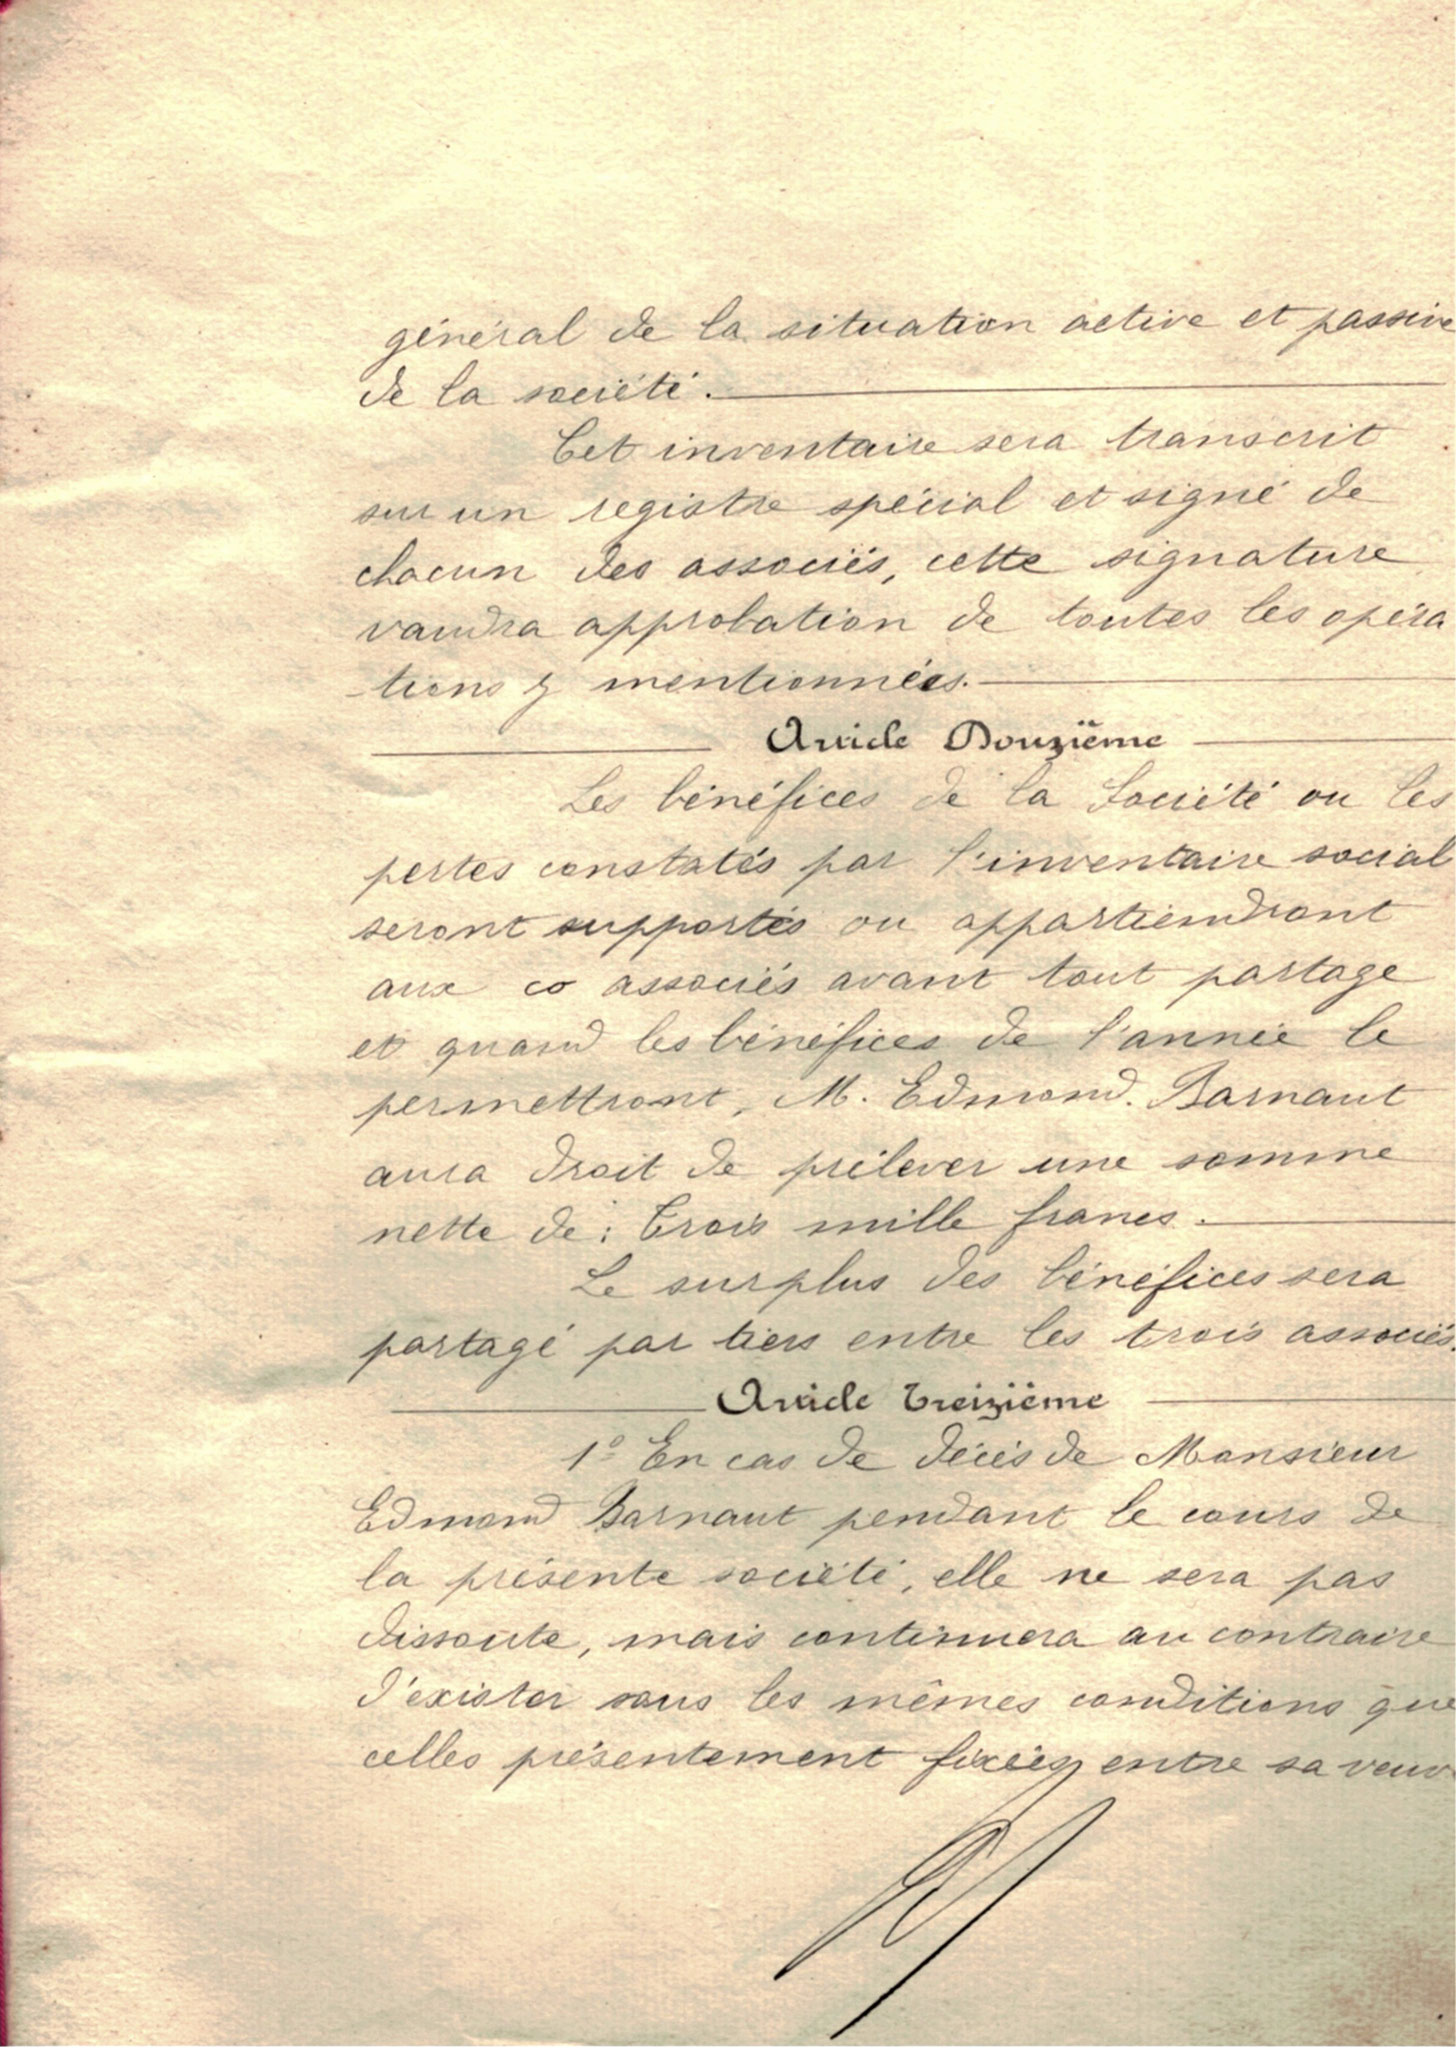 général de la situation active et passive
de la société.
Cet inventaire sera transcrit
sur un registre spécial et signé de
chacun des associés, cette signature
vaudra approbation de toutes les opéra
-tions y mentionnées.
Article Douzième
Les bénéfices de la Société ou les
pertes constatés par l'inventaire social
seront supportés ou appartiendront
aux co associés avant tout partage
et quand les bénéfices de l'année le
permettront, M. Edmond Barnaut
aura droit de prélever une somme
nette de: Trois mille francs.
Le surplus des bénéfices sera
partagé par tiers entre les trois associés.
Article Treizième
1º En cas de décés de Monsieur
Edmond Barnaut pendant le cours de
la présente société, elle ne sera pas
dissoute, mais continuera au contraire
d'exister sous les mêmes conditions que
celles présentement fixées entre sa veuv